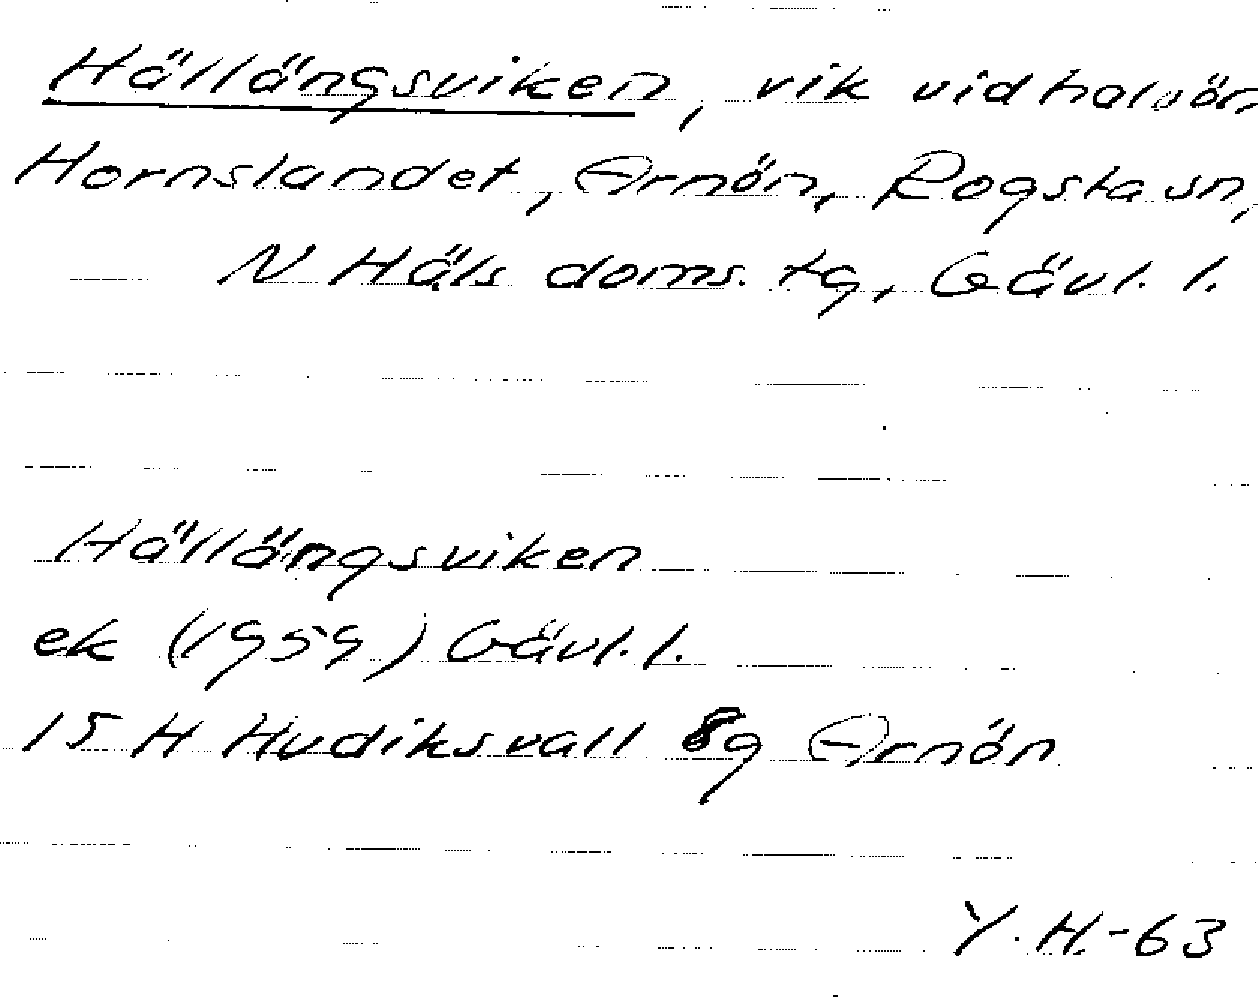 Hällängsviken, vik vid halvön
Hornslandet, Arnön, Rogsta sn,
N Häls doms. tg, Gävl. l.
Hällängsviken
ek (1959) Gävl. l.
15 H Hudiksvall 8g Arnön
Y. H.-63